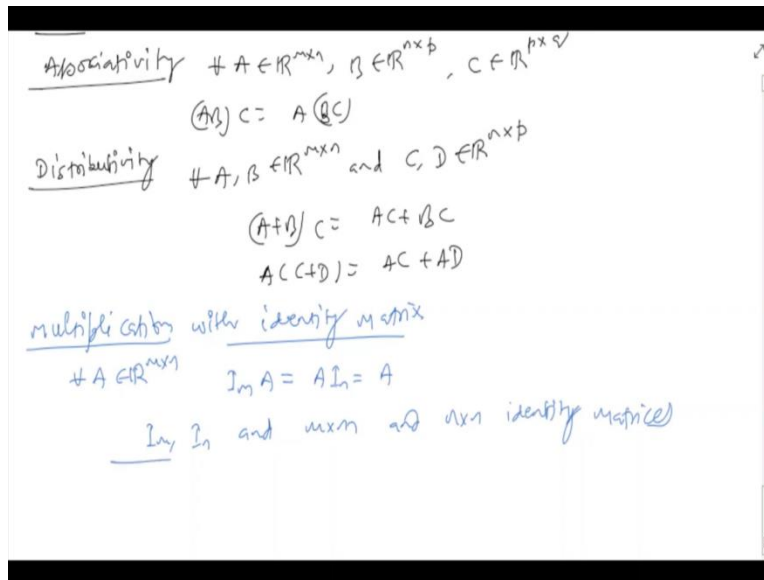 Associativity ∀ A ∈ ℝ^{m×n}, B ∈ ℝ^{n×p}, C ∈ ℝ^{p×q}
(AB) C = A (BC)
Distributivity ∀ A, B ∈ ℝ^{m×n} and C, D ∈ ℝ^{n×p}
(A+B) C = AC + BC
A(C+D) = AC + AD
Multiplication with identity matrix
∀ A ∈ ℝ^{m×n} I_m A = A I_n = A
I_m, I_n and m×m and n×n identity matrices